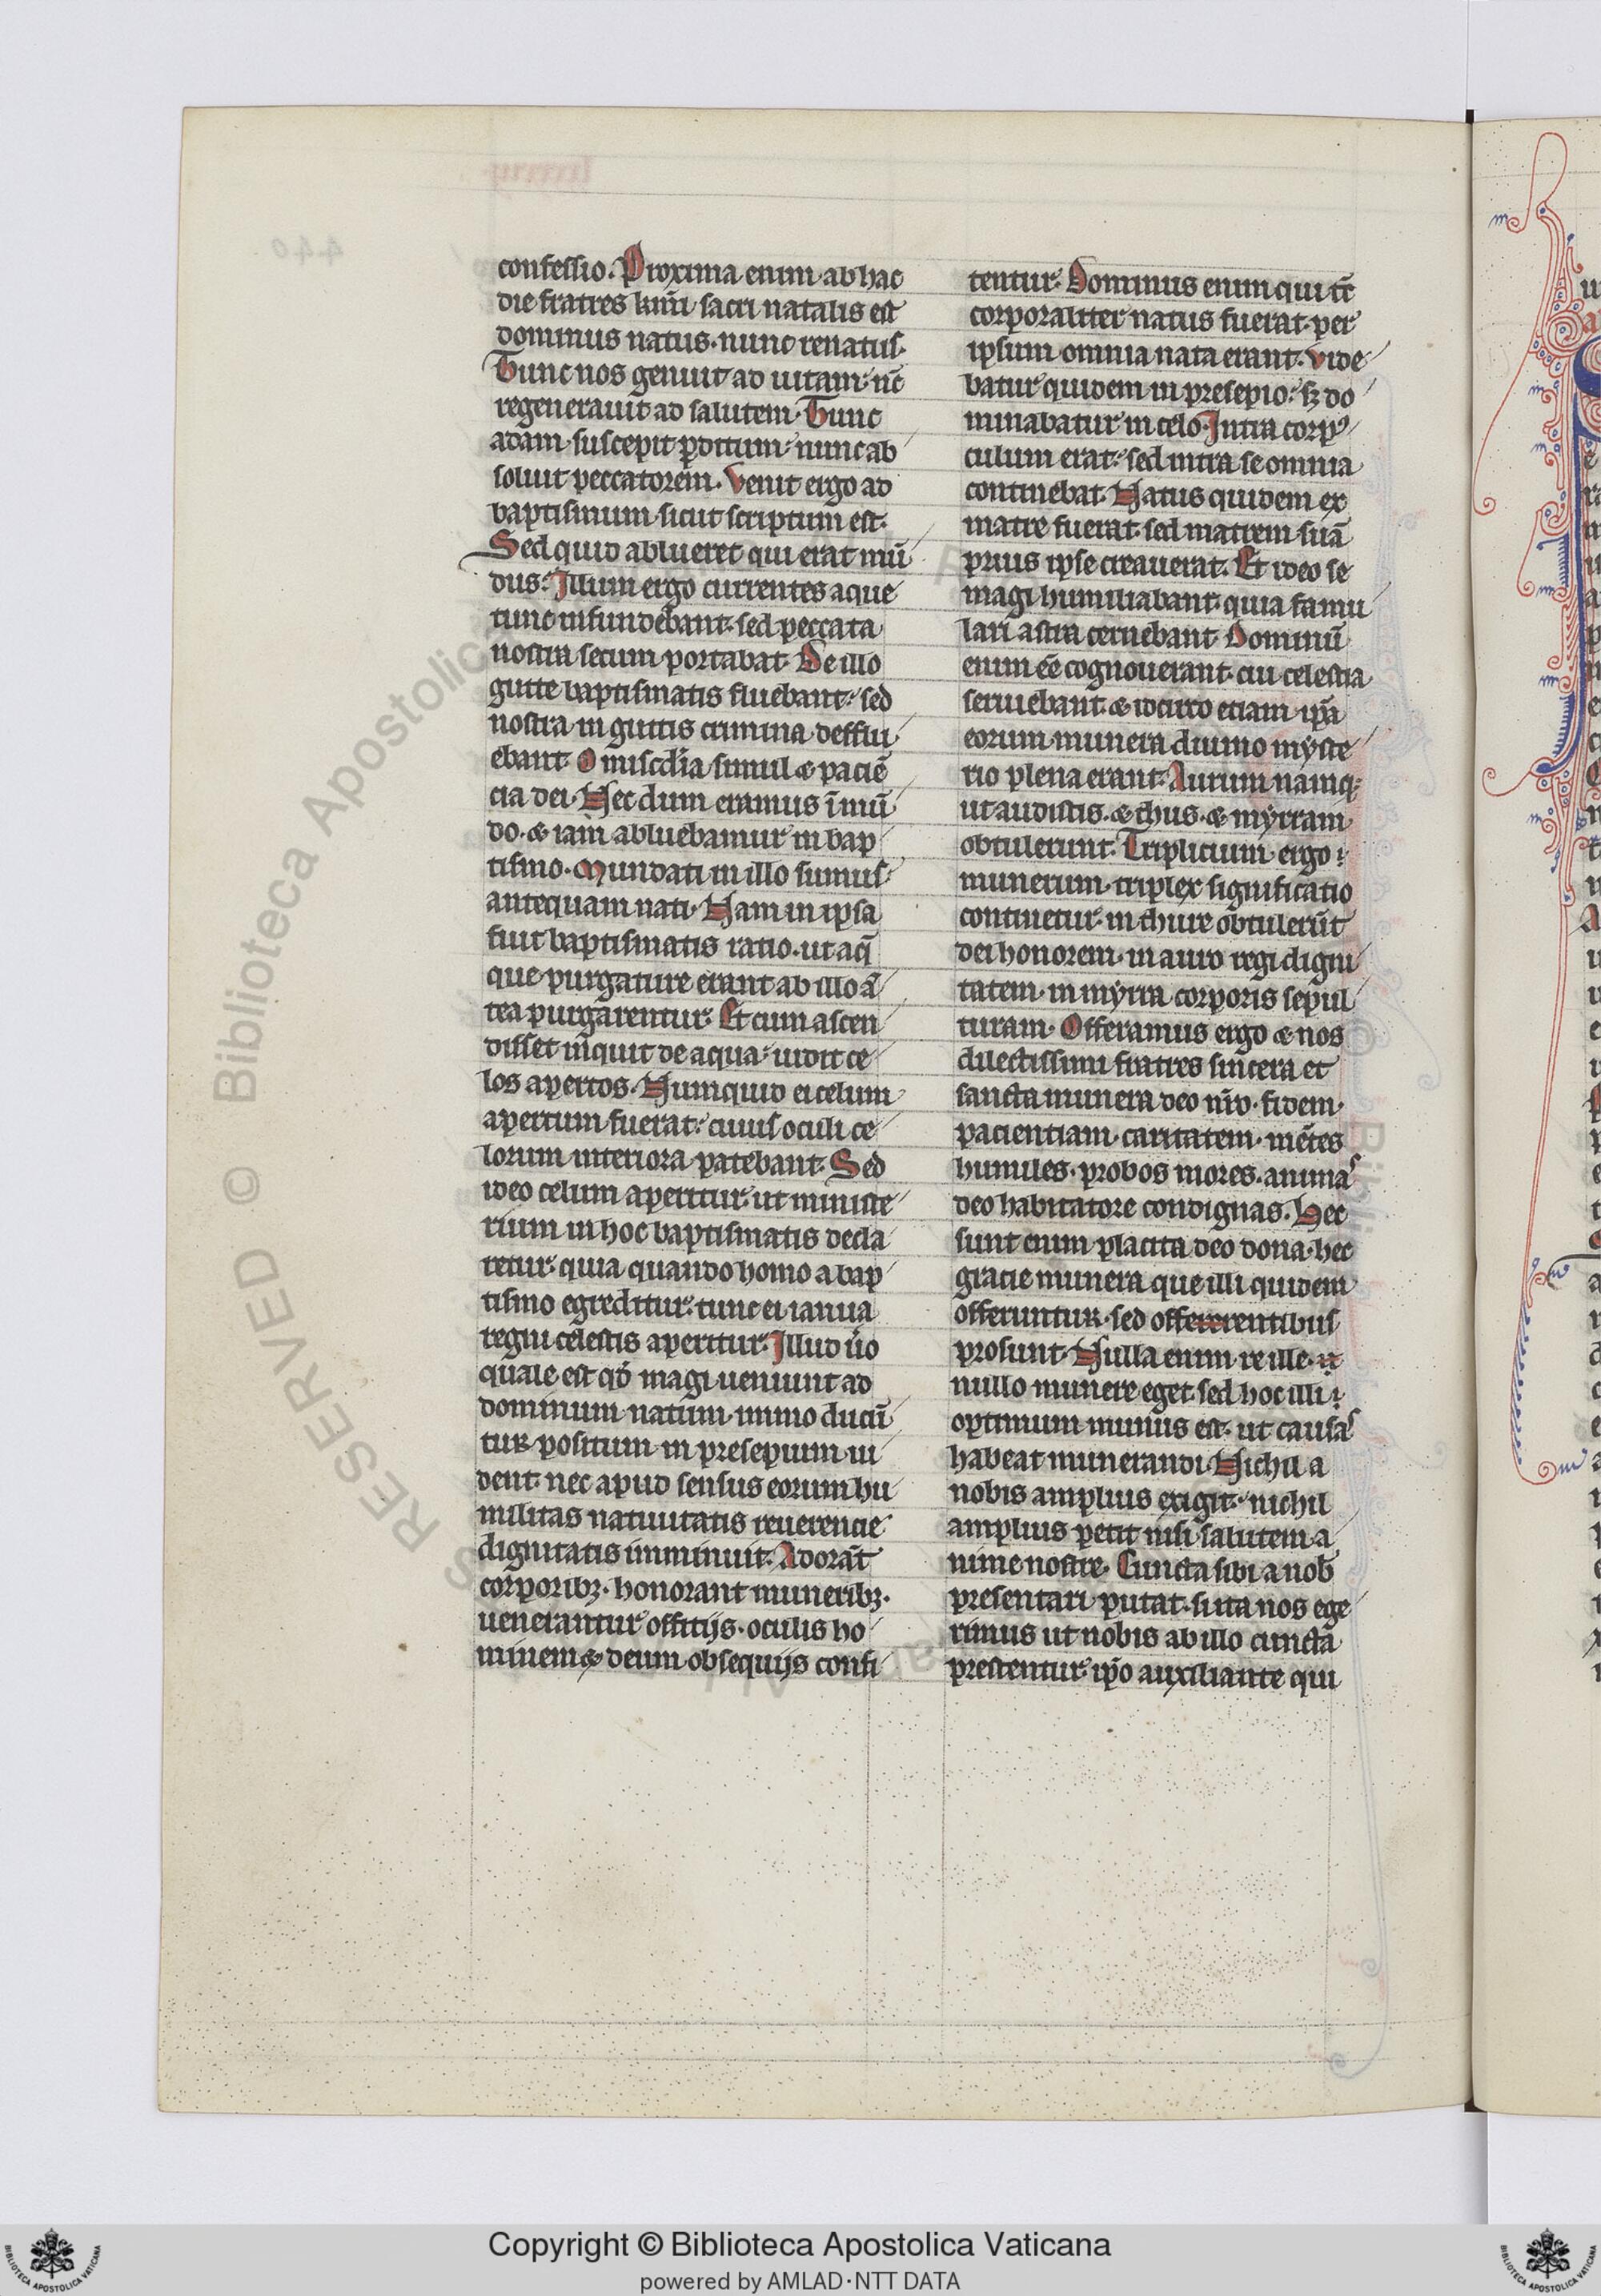 confessio. Proxima enim ab hac
die fratres kmi sacri natalis est
dominus natus. nunc renatus.
Tunc nos genuit ad uitam. nc̄
regenerauit ad salutem. Tunc
adam suscepit ꝑditum. nunc ab
soluit peccatorem. Venit ergo ad
baptismum sicut scriptum est.
Sed quid ablueret qui erat mū
dus. Illum ergo currentes aque
tunc infundebant. sed peccata
nostra secum portabat. De illo
gutte baptismatis fluebant. sed
nostra in guttis crimina defflu
ebant. O misc̄dia simul & paciē
cia dei. Nec dum eramus ī mū
do. & iam abluebamur in bap
tismo. Mundati in illo sumus
antequam nati. Nam in ipsa
fuit baptismatis ratio. ut aq̄
que purgature erant ab illo ā
tea purgarentur. Et cum ascen
disset inquit de aqua. uidit ce
los apertos. Numquid ei celum
apertum fuerat. cuius oculi ce
lorum interiora patebant. Sed
ideo celum aperitur. ut ministe
rium in hoc baptismatis decla
retur. quia quando homo a bap
tismo egreditur. tunc ei ianua
regni celestis aperitur. Illud ūo
quale est qd̄ magi ueniunt ad
dominum natum. immo ducū
tur. positum in presepium ui
dent. nec apud sensus eorum hu
militas natiuitatis reuerencie
dignitatis imminuit. Adorāt
corporibꝫ. honorant muneribꝫ.
uenerantur offitijs. oculis ho
minem & deum obsequijs confi
tentur. Dominus enim qui tc̄
corporaliter natus fuerat. per
ipsum omnia nata erant. Vide
batur quidem in presepio. sꝫ do
minabatur in celo. Intra corpꝰ
culum erat. sed intra se omnia
continebat. Natus quidem ex
matre fuerat. sed matrem suā
prius ipse creauerat. Et ideo se
magi humiliabant. quia famu
lari astra cernebant. Dominū
enim eē cognouerant. cui celestia
seruiebant. & idcirco etiam ip̄a
eorum munera diuino myste
rio plena erant. Aurum namqꝫ
ut audistis. & thus. & myrram
obtulerunt. Triplicium ergo
munerum. triplex significatio
continetur. in thure obtulerūt
dei honorem. in auro regi digni
tatem. in myrra corporis sepul
turam. Offeramus ergo & nos
dilectissimi fratres sincera et
sancta munera deo nr̄o. fidem.
pacientiam. caritatem. mētes
humiles. probos mores. animas
deo habitatore condignas. Hec
sunt enim placita deo dona. hec
gracie munera que illi quidem
offeruntur. sed offerrerentibus
prosunt. Nulla enim re ille.
nullo munere eget. sed hoc illi
optimum munus est. ut causas
habeat munerandi. Nichil a
nobis amplius exigit. nichil
amplius petit nisi salutem a
nime nostre. Cuncta sibi a nob
presentari putat. si ita nos ege
rimus ut nobis ab illo cuncta
prestentur. ip̄o auxiliante qui
440
© Biblioteca Apostolica
RESERVED
Copyright © Biblioteca Apostolica Vaticana
powered by AMLAD·NTT DATA
BIBLIOTECA APOSTOLICA VATICANA
BIBLIOTECA APOSTOLICA VATICANA